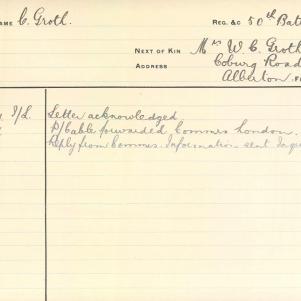 NAME C. Groth.
REG. &C 50th Batt
NEXT OF KIN Mrs W. C. Groth
ADDRESS Coburg Road
Alberton.
I/L. Letter acknowledged
D/Cable forwarded Commrs London.
Reply from Commrs. Information sent